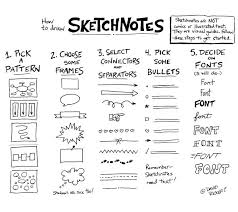 How
to draw
SKETCHNOTES
Sketchnotes are NOT
comics or illustrated text.
They are visual guides. Follow
these steps to get started.
1. PICK
A
PATTERN
2. CHOOSE
SOME
FRAMES
3. SELECT
CONNECTORS
AND
SEPARATORS
4. PICK
SOME
BULLETS
5. DECIDE
ON
FONTS
(3 will do-)
Font
Font
FONT
Font
FONT
FONT
FONT
FONT
Remember-
Sketchnotes
need text!